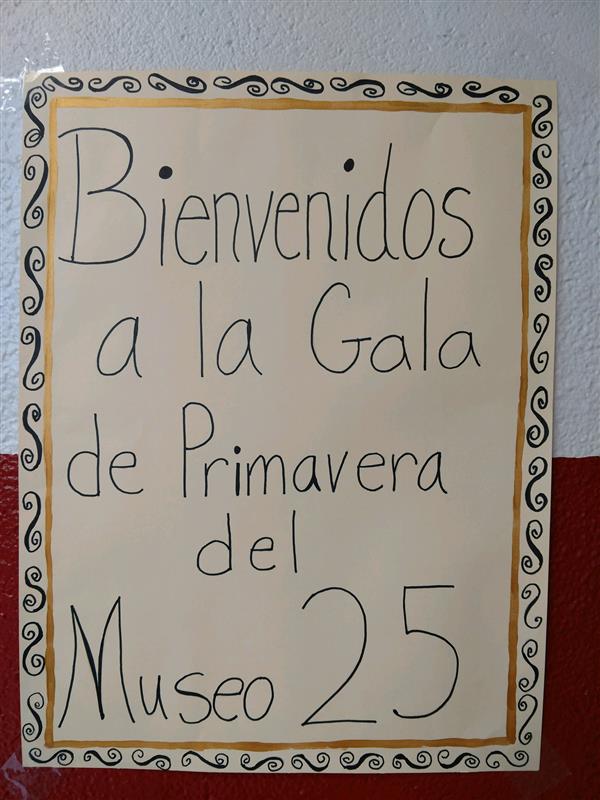 Bienvenidos
a la Gala
de Primavera
del
Museo 25